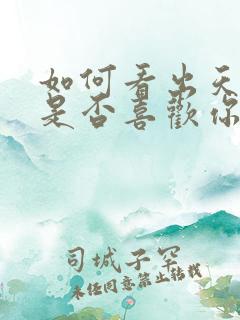 如何看出天
是否喜歡你
司城子空
未经同意禁止转载